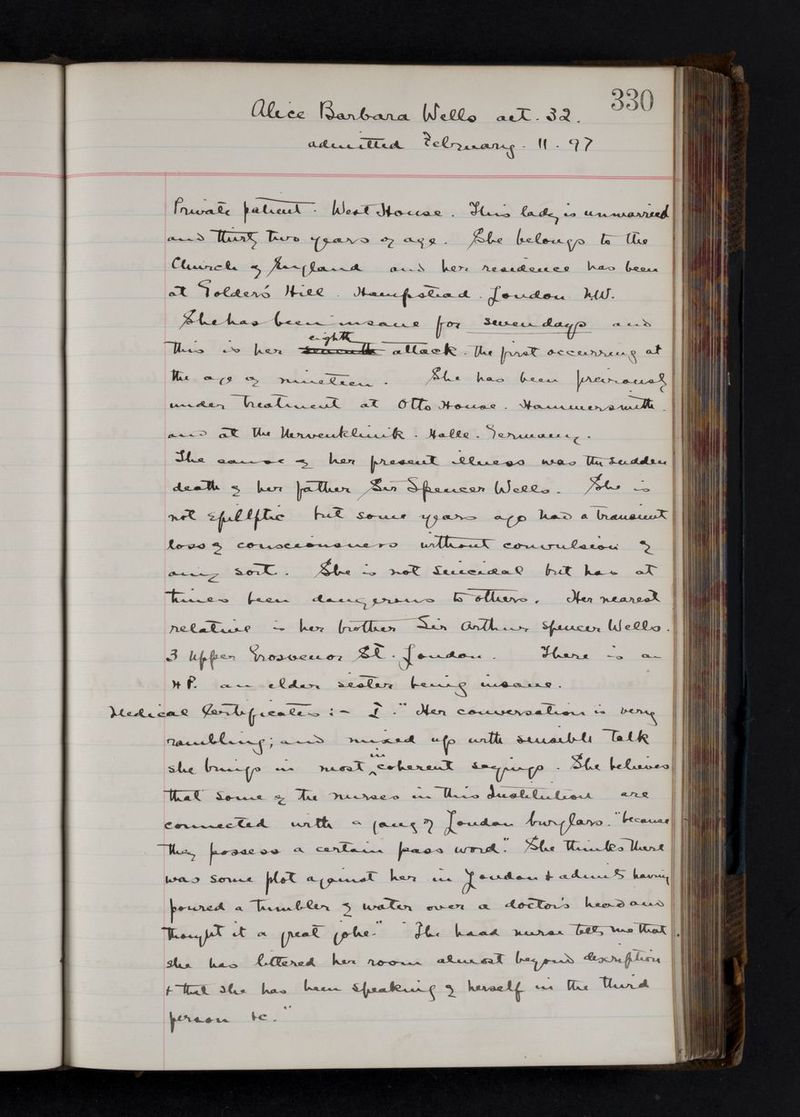 330
Alice Barbara Wells aet. 32.
admitted February - 11 - 97
Private patient - West House. This lady is unmarried
and thirty two years of age. She belongs to the
Church of England and her residence has been
at Golders Hill. Hampstead. London N.W.
She has been insane for seven days and
eighth
this is her seventh attack. the first occurring at
the age of nineteen. She has been previously
under treatment at Otto House. Hammersmith.
and at the Nervenklinik. Halle. Germany.
The cause of her present illness was the sudden
death of her father Sir Spencer Wells. She is
not epileptic but some years ago had a transient
loss of consciousness without convulsion of
any sort. She is not suicidal but has at
times been dangerous to others. Her nearest
relative is her brother Sir Arthur Spencer Wells.
3 Upper Grosvenor St. London. There is an
HP. an elder sister being insane.
Medical Certificates :- I. "Her conversation is very
rambling; and mixed up with sensible talk
she brings in most in coherent sayings. She believes
that some of the nurses in this Institution are
connected with a gang of London burglars. "because
they possess a certain pass word." She thinks there
was some plot against her in London & admits having
poured a tumbler of water over a doctor's head and
thought it a great joke." The head nurse tells me that
she has littered her room almost beyond description
& that she has been speaking of herself in the third
person &c."